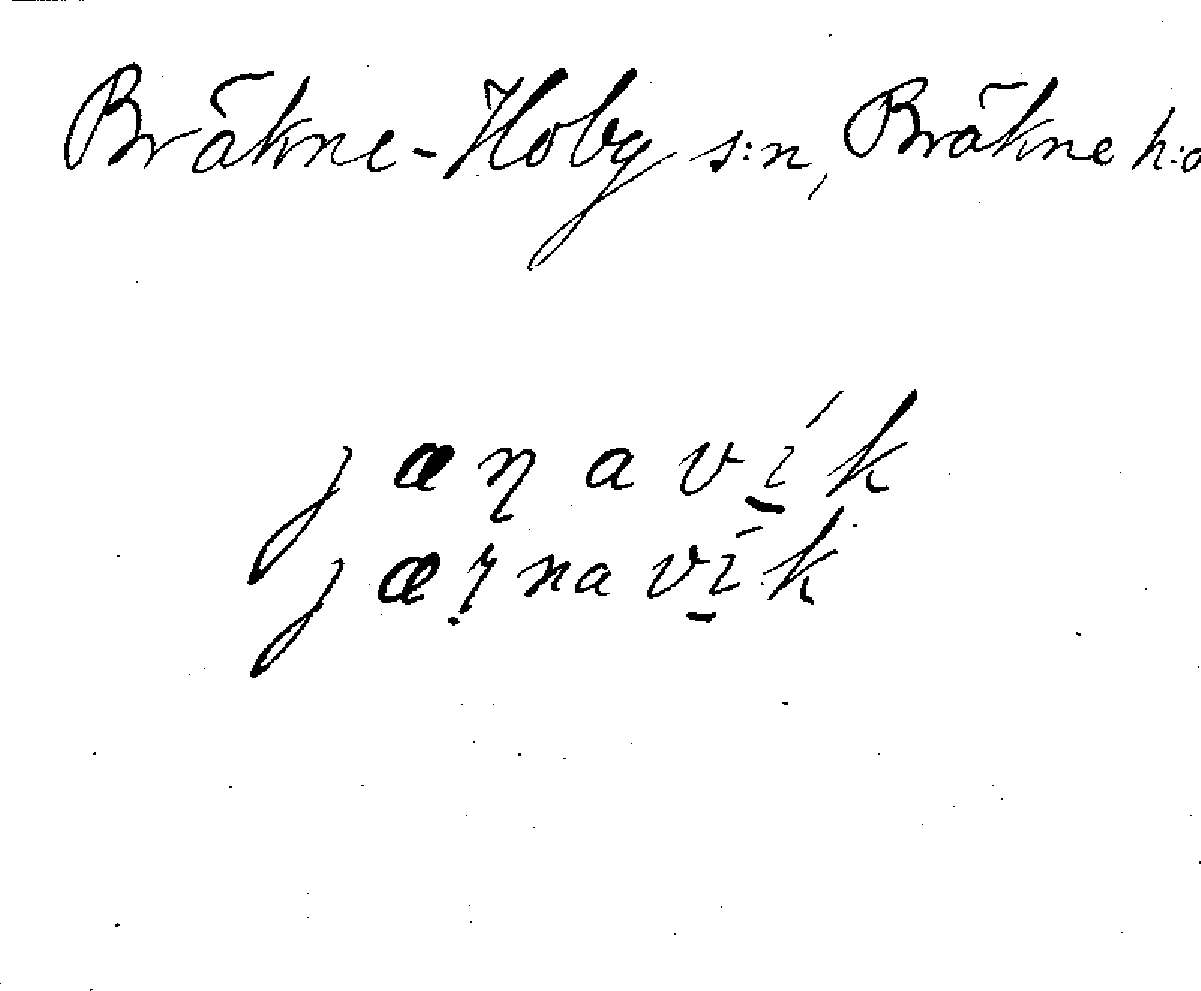 Bräkne-Hoby s:n, Bräkne h:d
jæɳaví̲k
jæṛnaví̲k